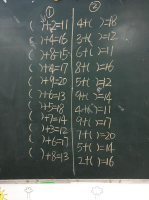 ① ②
( )+2=11 4+( )=18
( )+4=16 3+( )=12
( )+8=15 6+( )=11
( )+8=17 8+( )=16
( )+9=20 5+( )=12
( )+6=13 9+( )=14
( )+5=18 4+( )=11
( )+7=14 9+( )=17
( )+3=12 7+( )=20
( )+6=17 5+( )=14
( )+8=13 2+( )=16